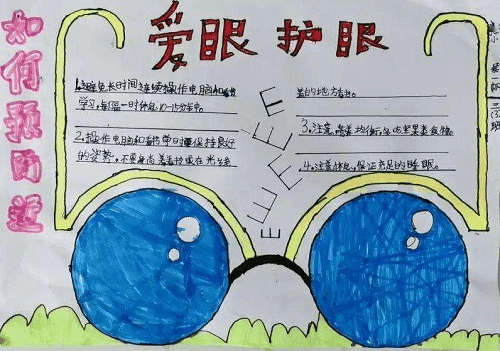 爱眼护眼
如何预防近
1.避免长时间连续操作电脑和
学习,每隔一时休息10-15分钟。
2.操作电脑和看书写时要保持良好
的姿势,不要身卧着看书或在光线
差的地方看书。
3.注意营养均衡,多吃坚果食物。
4.注意休息,保证充足的睡眠。
E
E
E
E
E
三
班